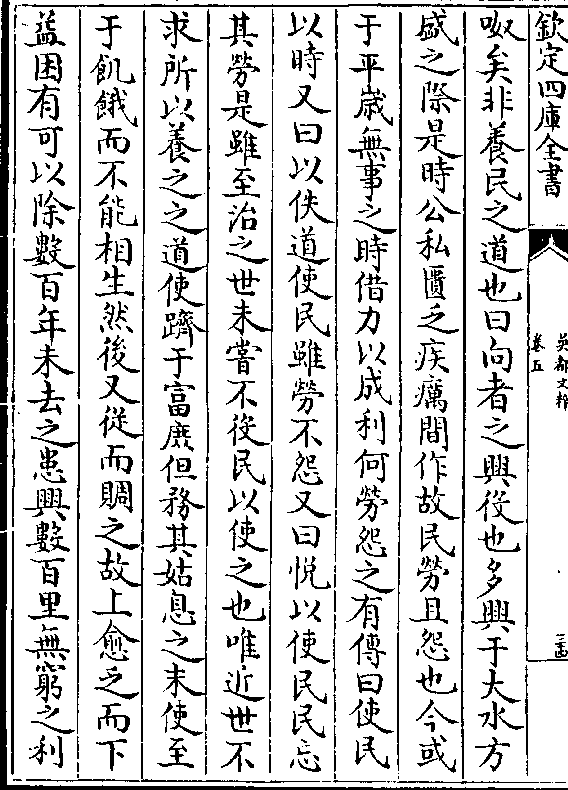 欽定四庫全書
吳都文粹
卷五
呶矣非養民之道也曰向者之興役也多興于大水方
盛之際是時公私匱乏疾癘間作故民勞且怨也今或
于平嵗無事之時借力以成利何勞怨之有傳曰使民
以時又曰以佚道使民雖勞不怨又曰悅以使民民忘
其勞是雖至治之世未嘗不役民以使之也唯近世不
求所以養之之道使躋于富庶但務其姑息之末使至
于飢餓而不能相生然後又從而賙之故上愈乏而下
益困有可以除數百年未去之患興數百里無窮之利